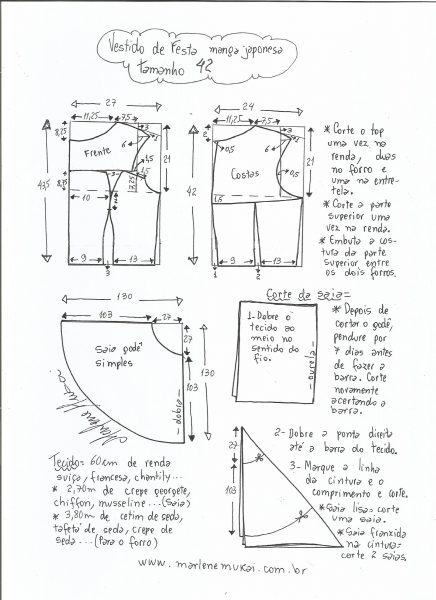 Vestido de Festa manga japonesa
tamanho 42
27
11,25
7,5
8,25
3
6
1,5
1,5
21
Frente
43,5
8,75
12,25
10
2
9
13
3
24
11,25
7,5
2
3
1
6
0,5
0,5
21
Costas
42
1,5
9
13
1
2
* Corte o top
uma vez na
renda, duas
no forro e
uma na entre-
tela.
* Corte a parte
superior uma
vez na renda.
* Embuta a cos-
tura da parte
superior entre
os dois forros.
130
103
27
27
Saia godê
simples
130
103
dobra
Marlene Mukai
Corte da saia=
1- Dobre o
tecido ao
meio no
sentido do
fio.
ourela
* Depois de
cortar o godê,
pendure por
7 dias antes
de fazer a
barra. Corte
novamente
acertando a
barra.
27
103
2- Dobre a ponta direita
até a barra do tecido.
3- Marque a linha
da cintura e o
comprimento e corte.
* Saia lisa= corte
uma saia.
* Saia franzida
na cintura=
corte 2 saias.
Tecido= 60cm de renda
suiça, francesa, chantily...
* 2,70m de crepe georgete,
chiffon, musseline...(Saia)
* 3,80m de cetim de seda,
tafetá de seda, crepe de
seda...(Para o forro)
www.marlenemukai.com.br